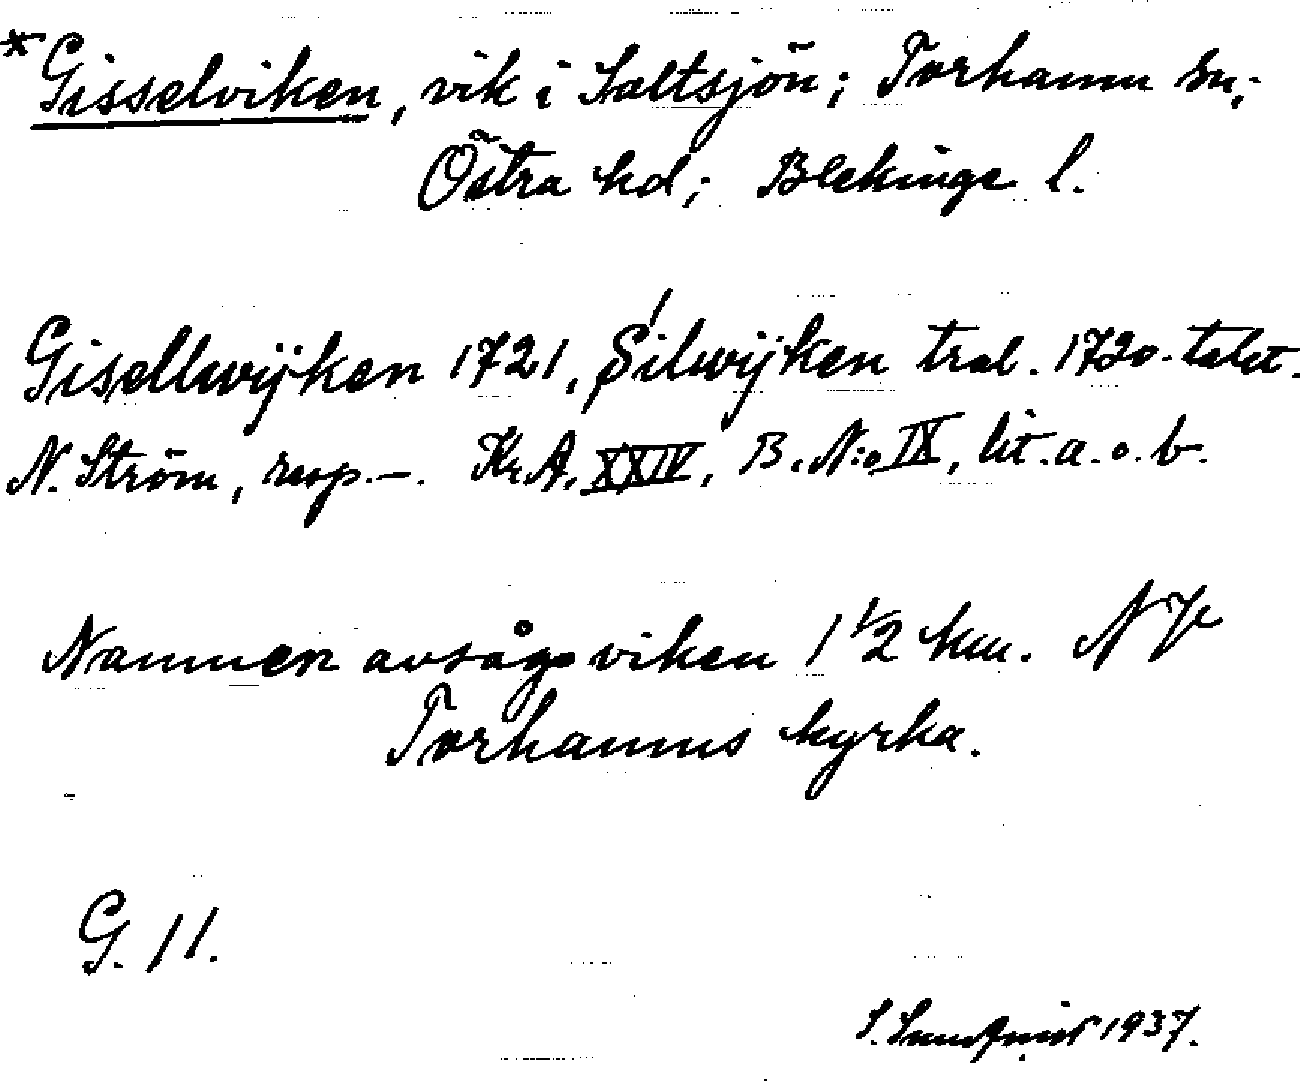 *Gisselviken, vik i Saltsjön; Torhamn sn;
Östra hd; Blekinge l.
Gisellwijken 1721, Silwijken trol. 1720-talet.
N. Ström, resp. –. Kr.A. XXIV, B. N:o IX, lit. a. o. b.
Namnen avsåge viken 1 1/2 km. NV
Torhamns kyrka.
G. 11.
S. Sundqvist 1937.